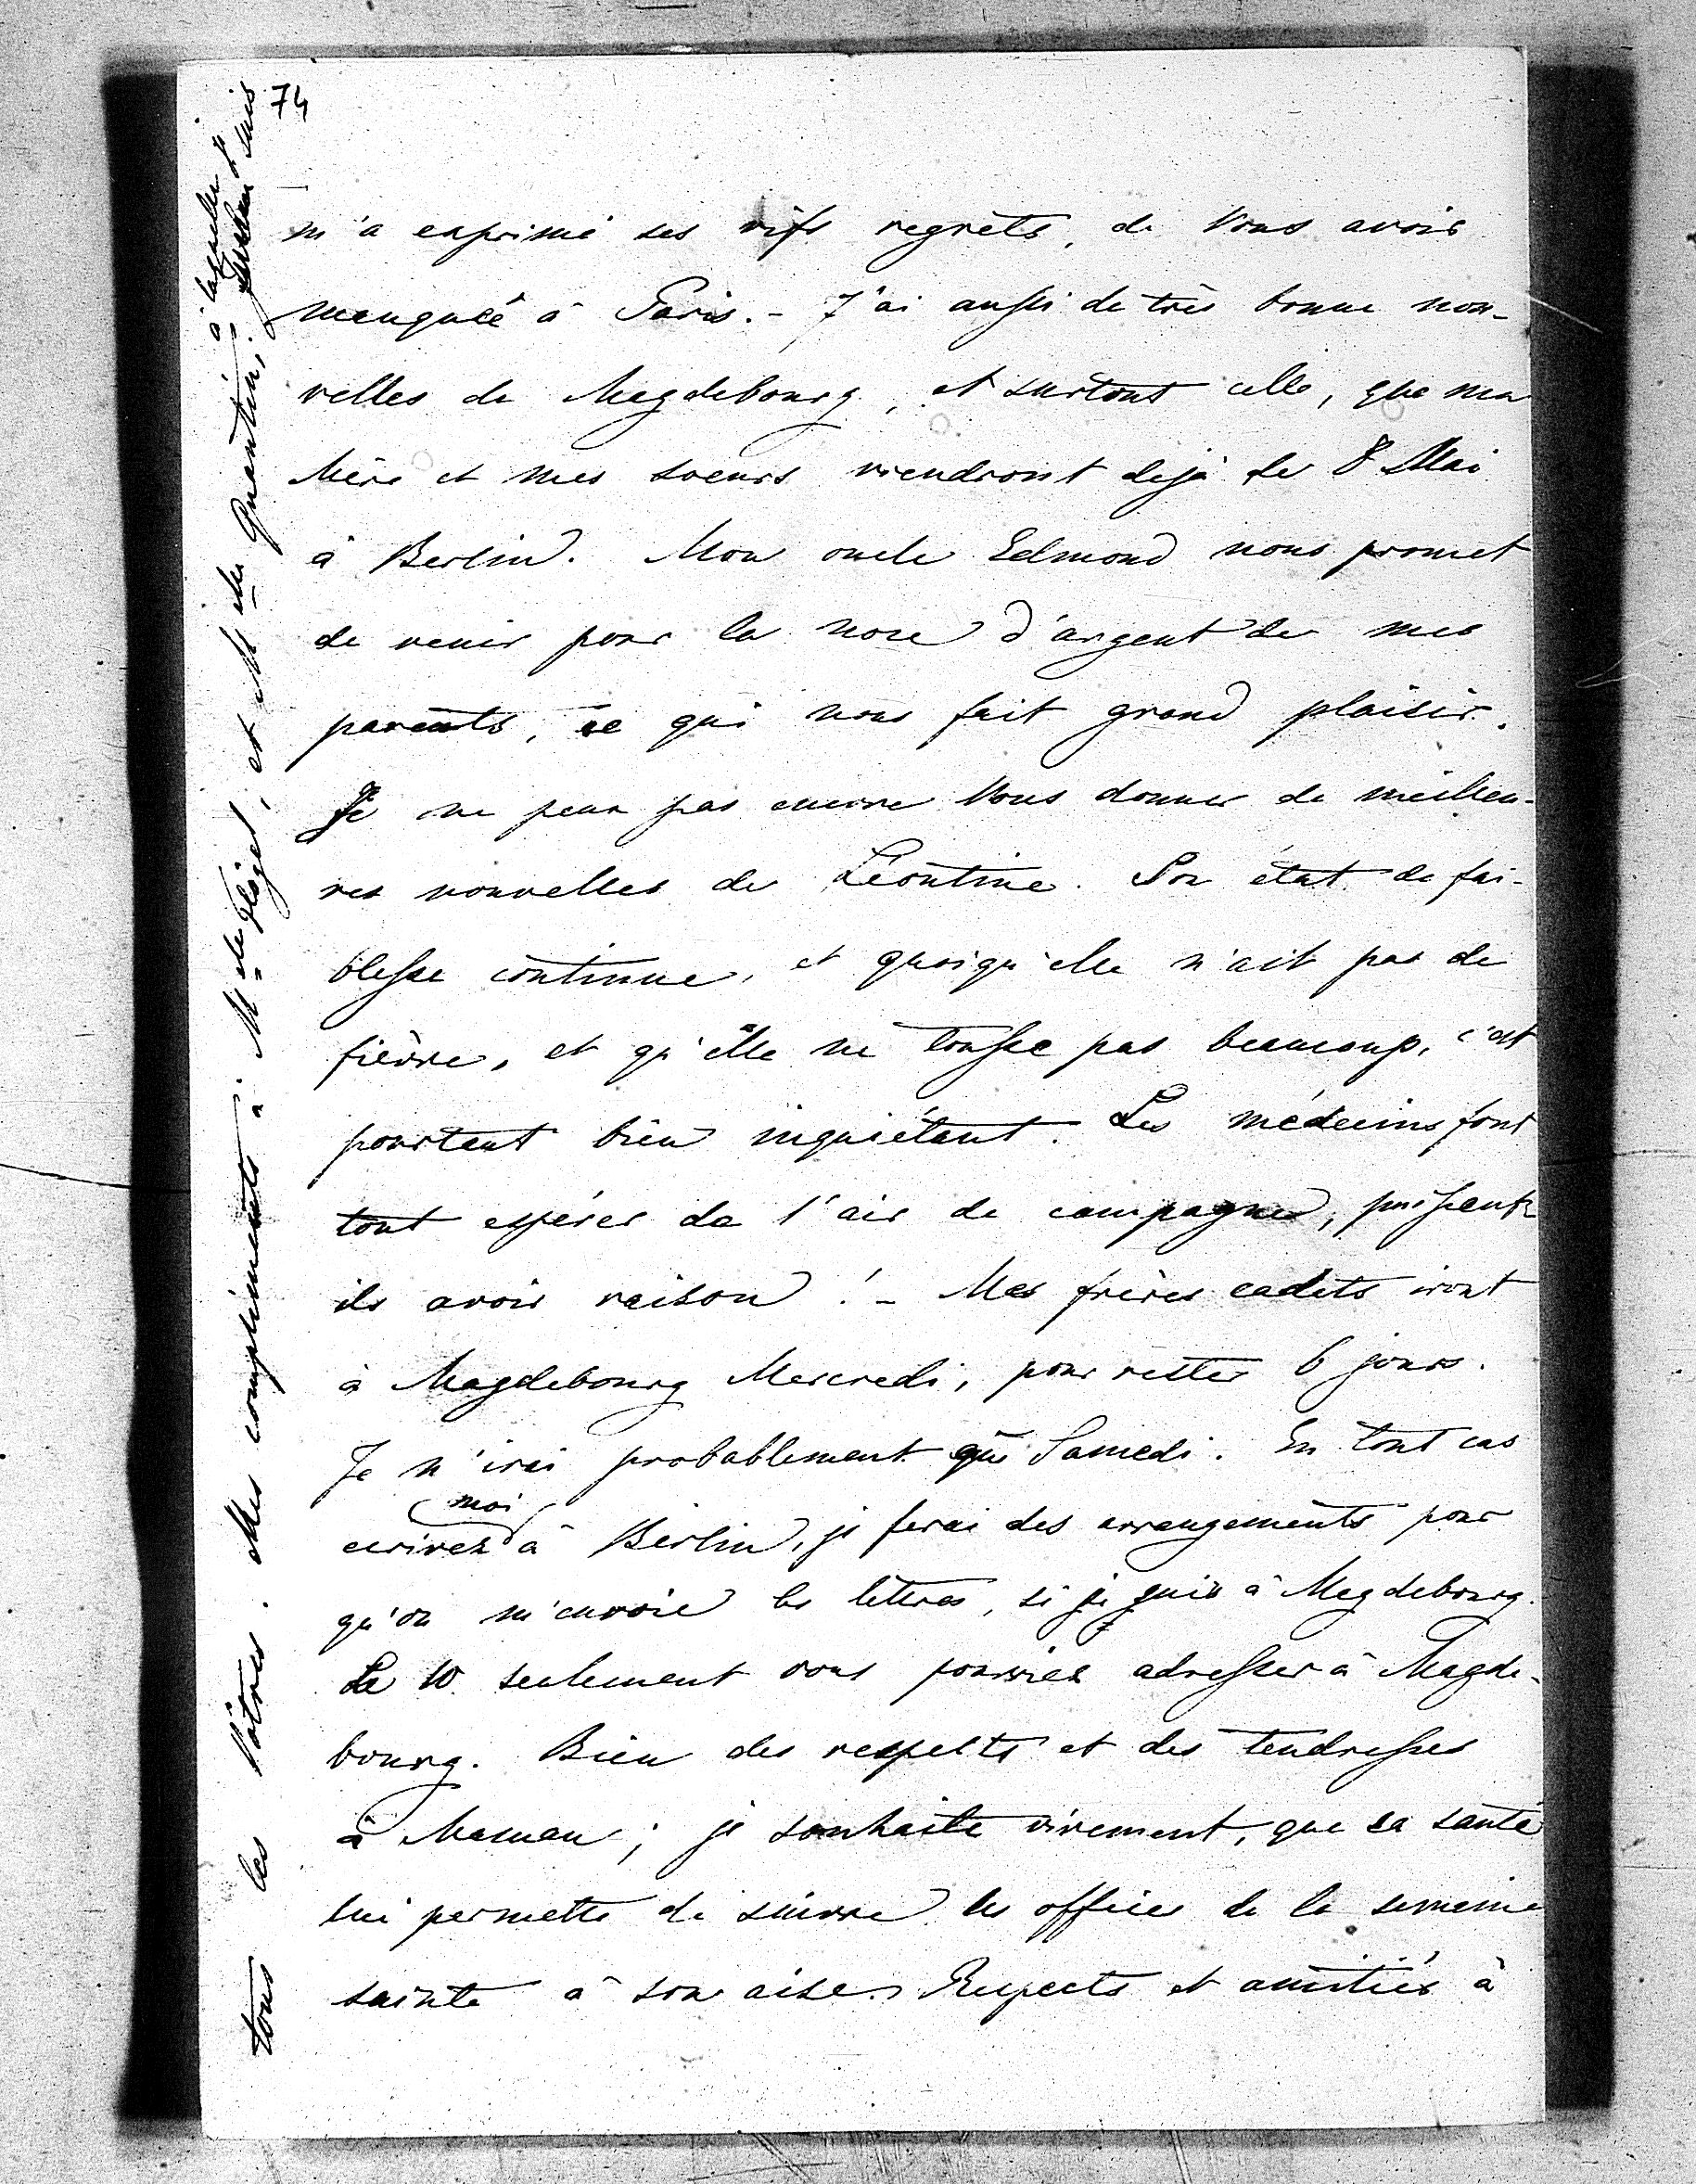 74
m'a exprimé ses vifs regrets, de Vous avoir
manquée à Paris. - J'ai aussi de très bonne nou-
velles de Magdebourg, et surtout celle, que ma
Mère et mes soeurs viendront dejà le 8 Mai
à Berlin. Mon oncle Edmond nous promet
de venir pour la noce d'argent de mes
parents, ce qui nous fait grand plaisir.
Je ne peux pas encore Vous donner de meilleu-
res nouvelles de Léontine. Son état de fai-
blesse continue, et quoiqu'elle n'ait pas de
fièvre, et qu'elle ne tousse pas beaucoup, c'est
pourtant bien inquiétant. Les médecins font
tout espérer de l'air de campagne, puissent-
ils avoir raison ! - Mes frères cadets iront
à Magdebourg Mercredi, pour rester 6 jours.
Je n'irai probablement que Samedi. En tout cas
moi
ecrivez à Berlin, je ferai des arrangements pour
qu'on m'envoie les lettres, si je suis à Magdebourg.
Le 10 seulement vous pourriez adresser à Magde-
bourg. Bien des respects et des tendresses
à Maman ; je souhaite vivement, que sa santé
lui permette de suivre les offices de la semaine
sainte à son aise. Respects et amitiés à
tous les Vôtres. Mes complimènts à M et M de Quantin,
à laquelle je suis